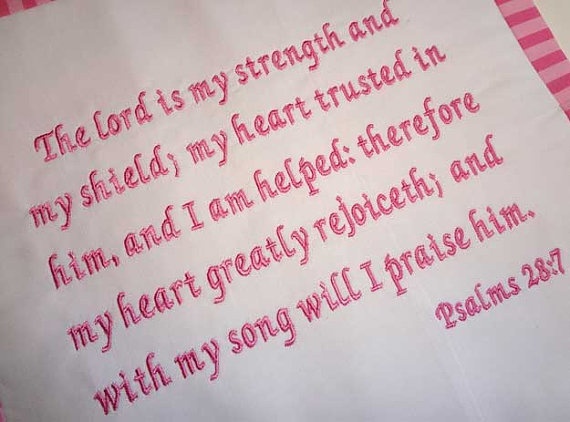 The lord is my strength and
my shield; my heart trusted in
him, and I am helped: therefore
my heart greatly rejoiceth; and
with my song will I praise him.
Psalms 28:7